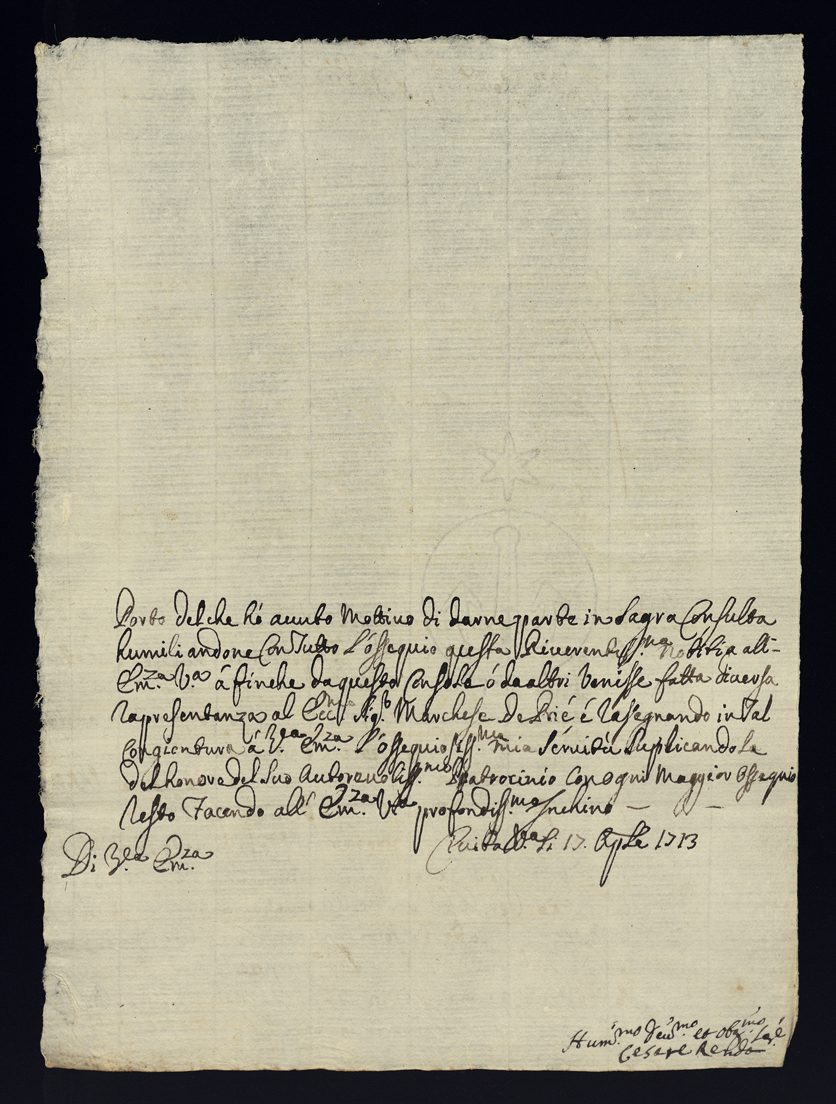 Porto del che hó auuto Mottiuo di darne parte in Sagra Consulta
humiliandone Con Tutto L'óssequio questa Reuerentiss.ma Notitia all'-
Em.za V.a á finche da questo Console ó da altri Venisse fatta diuersa
rapresentanza al Sig.r Marchese De Prié é rasegnando in Tal
Congientura á V.ra Em.za L'óssequiosiss.ma mia Seruitú Suplicandola
del honore del Suo Autoreuoliss.mo Patrocinio Con ogni Maggior óssequio
resto Facendo all' Em.za V.ra profondiss.mo Inchino —
Ciuita V.a Li 17. Aple 1713
Di V.ra Em.za
Hum.mo Deu.mo et Obg.mo Ser.e
Cesare Rendo